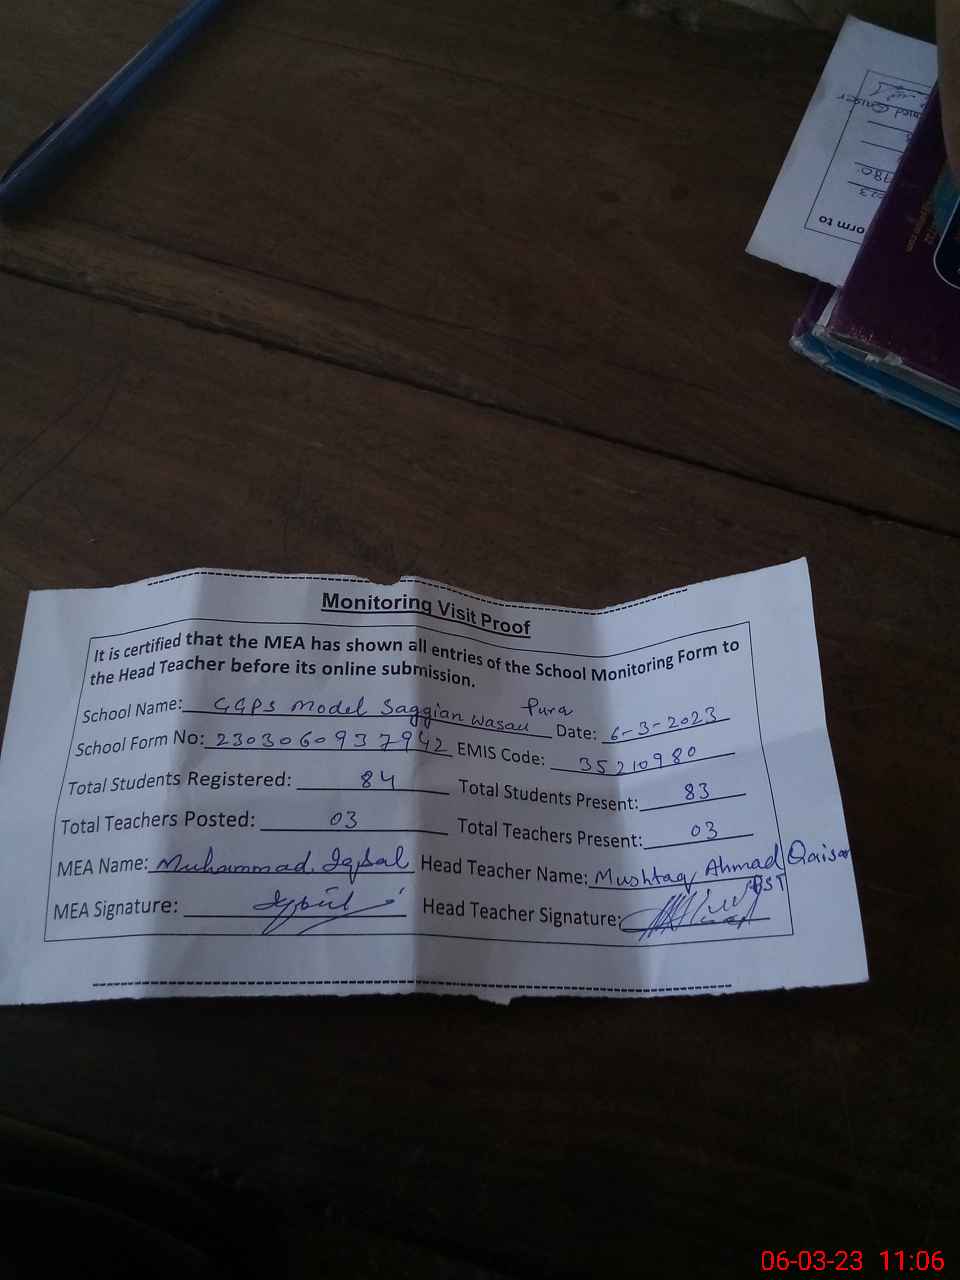 Monitoring Visit Proof
It is certified that the MEA has shown all entries of the School Monitoring Form to
the Head Teacher before its online submission.
School Name: GGPS Model Saggian Wasan Pura Date: 6-3-2023
School Form No: 2303060937942 EMIS Code: 35210980
Total Students Registered: 84 Total Students Present: 83
Total Teachers Posted: 03 Total Teachers Present: 03
MEA Name: Muhammad Iqbal Head Teacher Name: Mushtaq Ahmad Qaisar
MEA Signature: Head Teacher Signature:
orm to
06-03-23 11:06